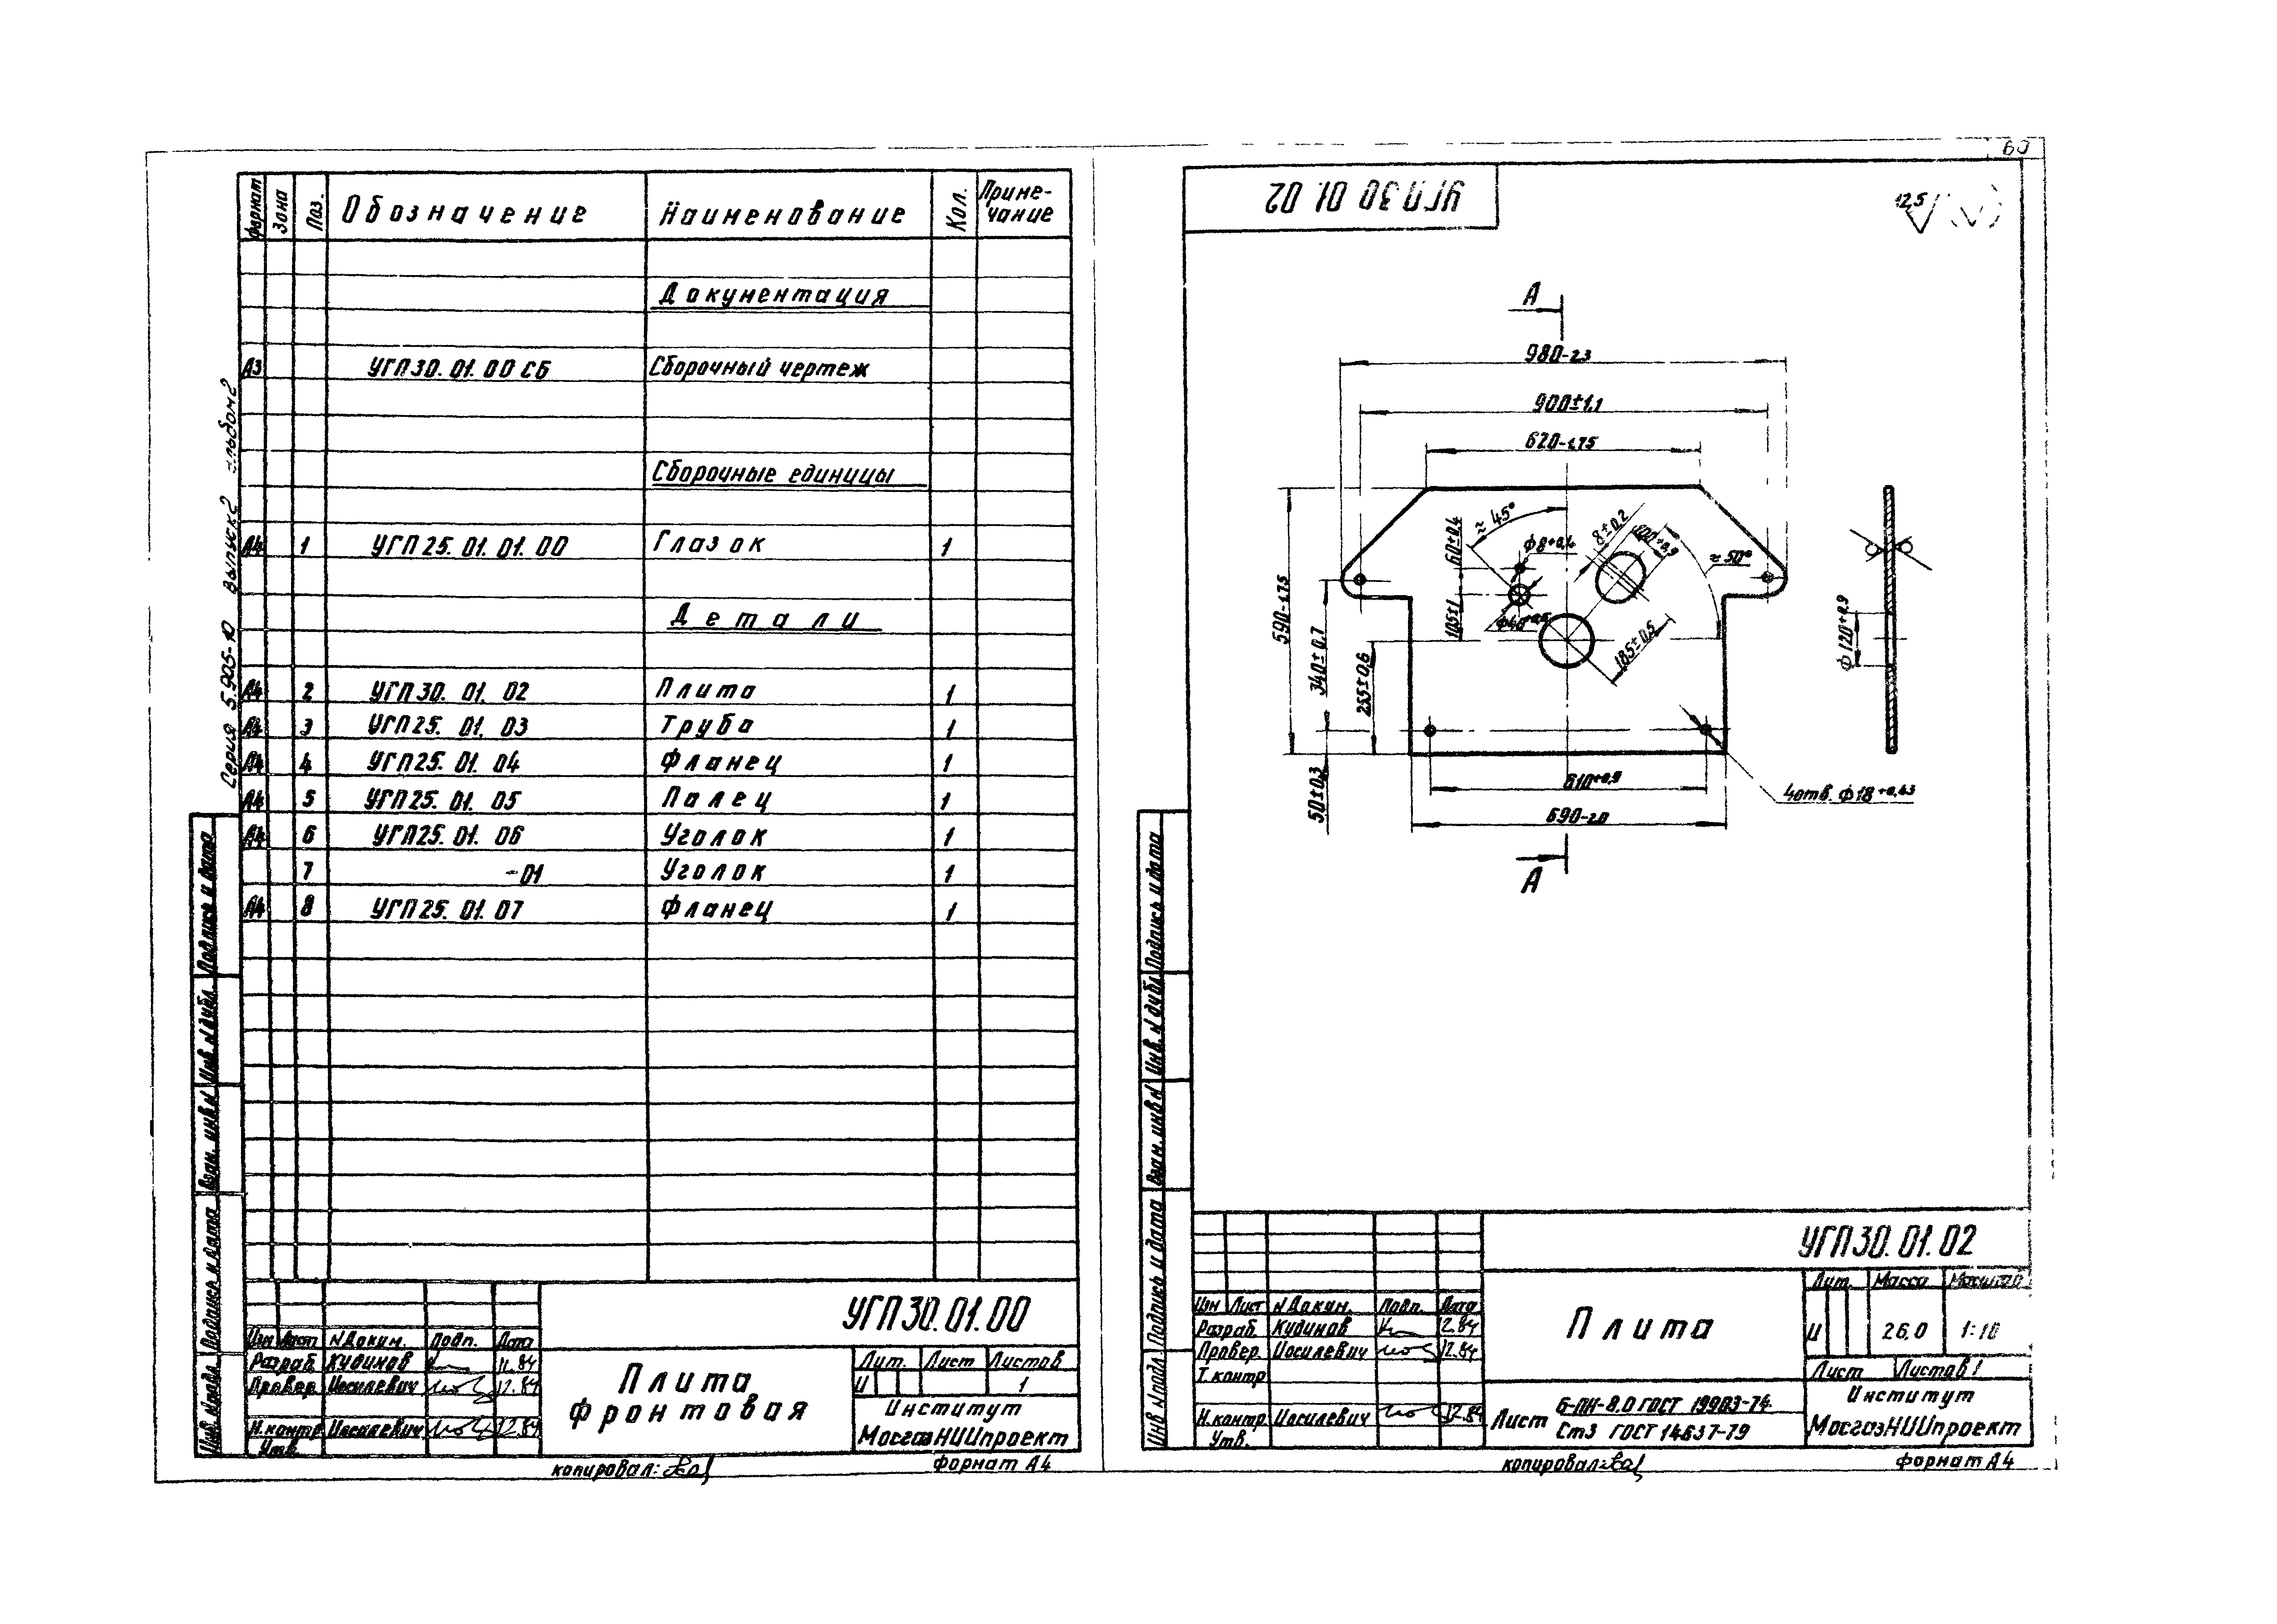 60
Формат Зона Поз. Обозначение Наименование Кол. Приме-
чание
Документация
А3 УГП30.01.00 СБ Сборочный чертеж
Сборочные единицы
А4 1 УГП25.01.01.00 Глазок 1
Детали
А4 2 УГП30.01.02 Плита 1
А4 3 УГП25.01.03 Труба 1
А4 4 УГП25.01.04 Фланец 1
А4 5 УГП25.01.05 Палец 1
А4 6 УГП25.01.06 Уголок 1
7 -01 Уголок 1
А4 8 УГП25.01.07 Фланец 1
Серия 5.905-10 выпуск 2 альбом 2
Подпись и дата
Инв. № дубл.
Взам. инв №
Подпись и дата
Инв. № подл.
УГП30.01.00
Изм Лист № Докум. Подп. Дата
Разраб. Кудинов 11.84
Провер. Иосилевич 12.84
Н.контр Иосилевич 12.84
Утв.
Плита
фронтовая
Лит. Лист Листов
И 1
Институт
МосгазНИИпроект
копировал:
формат А4
УГП30 01. 02
12,5
А
980-2.3
900±1,1
620-1.75
≈45°
8±0.2
100+0,9
≈50°
60±0.4
ф8+0,1
105±1
185±0.5
590-1.75
340±0,7
255±0.6
50±0.3
610+0,9
690-2.0
4отв. ф18+0,43
ф120+0,9
А
Подпись и дата
Инв. № дубл
Взам. инв №
Подпись и дата
Инв № подл
УГП30.01.02
Изм Лист № Докум. Подп. Дата
Разраб. Кудинов 12.84
Провер. Иосилевич 12.84
Т. контр
Н.контр Иосилевич 12.84
Утв.
Плита
Лит. Масса Масштаб
И 26,0 1:10
Лист Листов 1
Лист Б-ПН-8,0 ГОСТ 19903-74
Ст3 ГОСТ 14637-79
Институт
МосгазНИИпроект
копировал:
формат А4